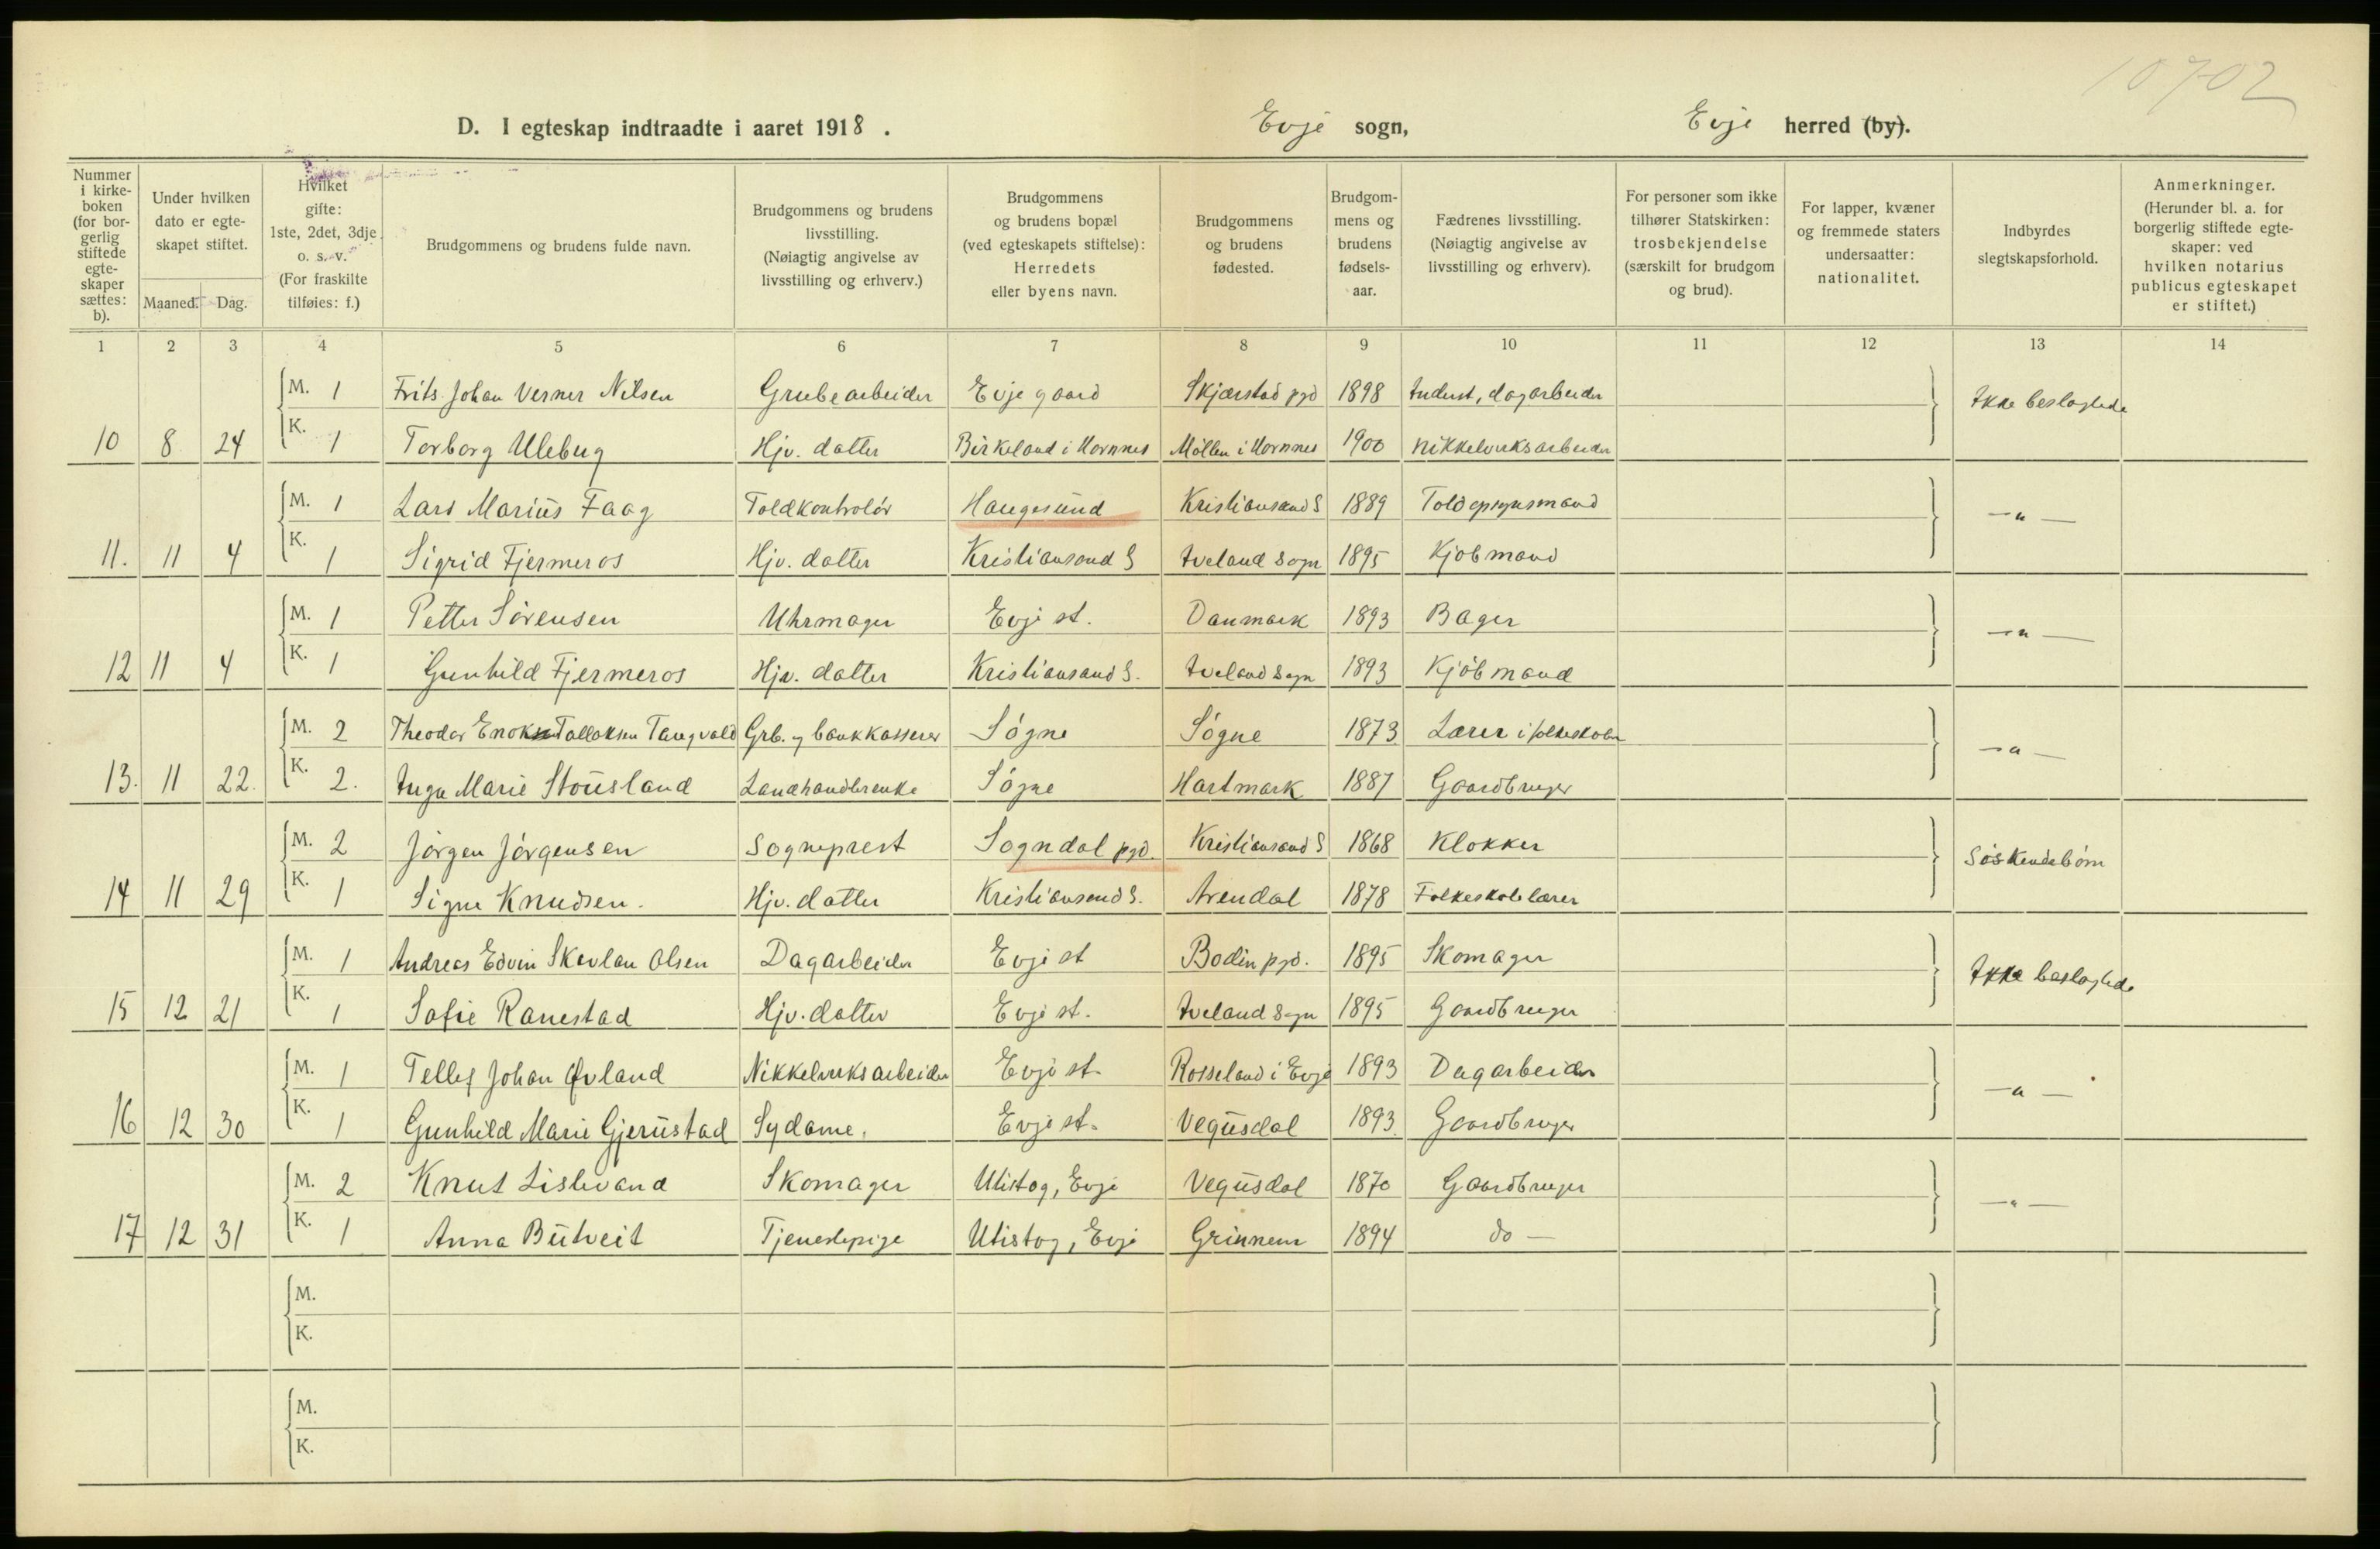 10702
D. I egteskap indtraadte i aaret 1918. Evje sogn, Evje herred (by).
Nummer i kirkeboken (for borgerlig stiftede egteskaper sættes: b).
Under hvilken dato er egteskapet stiftet.
Maaned. Dag.
Hvilket gifte: 1ste, 2det, 3dje o. s. v. (For fraskilte tilføies: f.)
Brudgommens og brudens fulde navn.
Brudgommens og brudens livsstilling. (Nøiagtig angivelse av livsstilling og erhverv.)
Brudgommens og brudens bopæl (ved egteskapets stiftelse): Herredets eller byens navn.
Brudgommens og brudens fødested.
Brudgommens og brudens fødselsaar.
Fædrenes livsstilling. (Nøiagtig angivelse av livsstilling og erhverv).
For personer som ikke tilhører Statskirken: trosbekjendelse (særskilt for brudgom og brud).
For lapper, kvæner og fremmede staters undersaatter: nationalitet.
Indbyrdes slegtskapsforhold.
Anmerkninger. (Herunder bl. a. for borgerlig stiftede egteskaper: ved hvilken notarius publicus egteskapet er stiftet.)
1 2 3 4 5 6 7 8 9 10 11 12 13 14
M. 1 Frits Johan Verner Nilsen Grubearbeider Evje gaard Skjærstad pgd 1898 Indust, dagarbeider Ikke beslægtede
10 8 24 K. 1 Torborg Ulebug Hjv. datter Birkeland i Hornnes Möllen i Hornnes 1900 Nikkelverksarbeider
M. 1 Lars Marius Faag Toldkontrolör Haugesund Kristiansand S 1889 Toldopsynsmand — " —
11. 11 4 K. 1 Sigrid Fjermeros Hjv. datter Kristiansand S Iveland Sogn 1895 Kjøbmand
M. 1 Petter Sörensen Uhrmager Evje st. Danmark 1893 Bager — " —
12 11 4 K. 1 Gunhild Fjermeros Hjv. datter Kristiansand S. Iveland Sogn 1893 Kjöbmand
M. 2 Theodor Enok Tallaksen Tangvald Grb. og bankkasserer Sögne Sögne 1873. Lærer i folkeskolen — " —
13. 11 22. K. 2. Inga Marie Stousland Landhandlerenke Sögne Hartmark 1887 Gaardbruger
M. 2 Jörgen Jörgensen Sogneprest Sogndal pgd. Kristiansand S 1868 Klokker Söskendebörn
14 11 29 K. 1 Signe Knudsen. Hjv. datter Kristiansand S. Arendal 1878 Folkeskolelærer
M. 1 Andreas Edvin Skavlan Olsen Dagarbeider Evje st Bodin pgd. 1895 Skomager Ikke beslægtede
15 12 21 K. 1 Sofie Ranestad Hjv. datter Evje st. Iveland Sogn 1895 Gaardbruger
M. 1 Tellef Johan Øvland Nikkelverksarbeider Evje st. Rosseland i Evje 1893 Dagarbeider — " —
16 12 30 K. 1 Gunhild Marie Gjerustad Sydame. Evje st. Vegusdal 1893. Gaardbruger
M. 2 Knut Lislevand Skomager Utistog, Evje Vegusdal 1870 Gaardbruger — " —
17 12 31 K. 1 Anna Butveit Tjenestepige Utistog, Evje 1894 do —
M.
K.
M.
K.